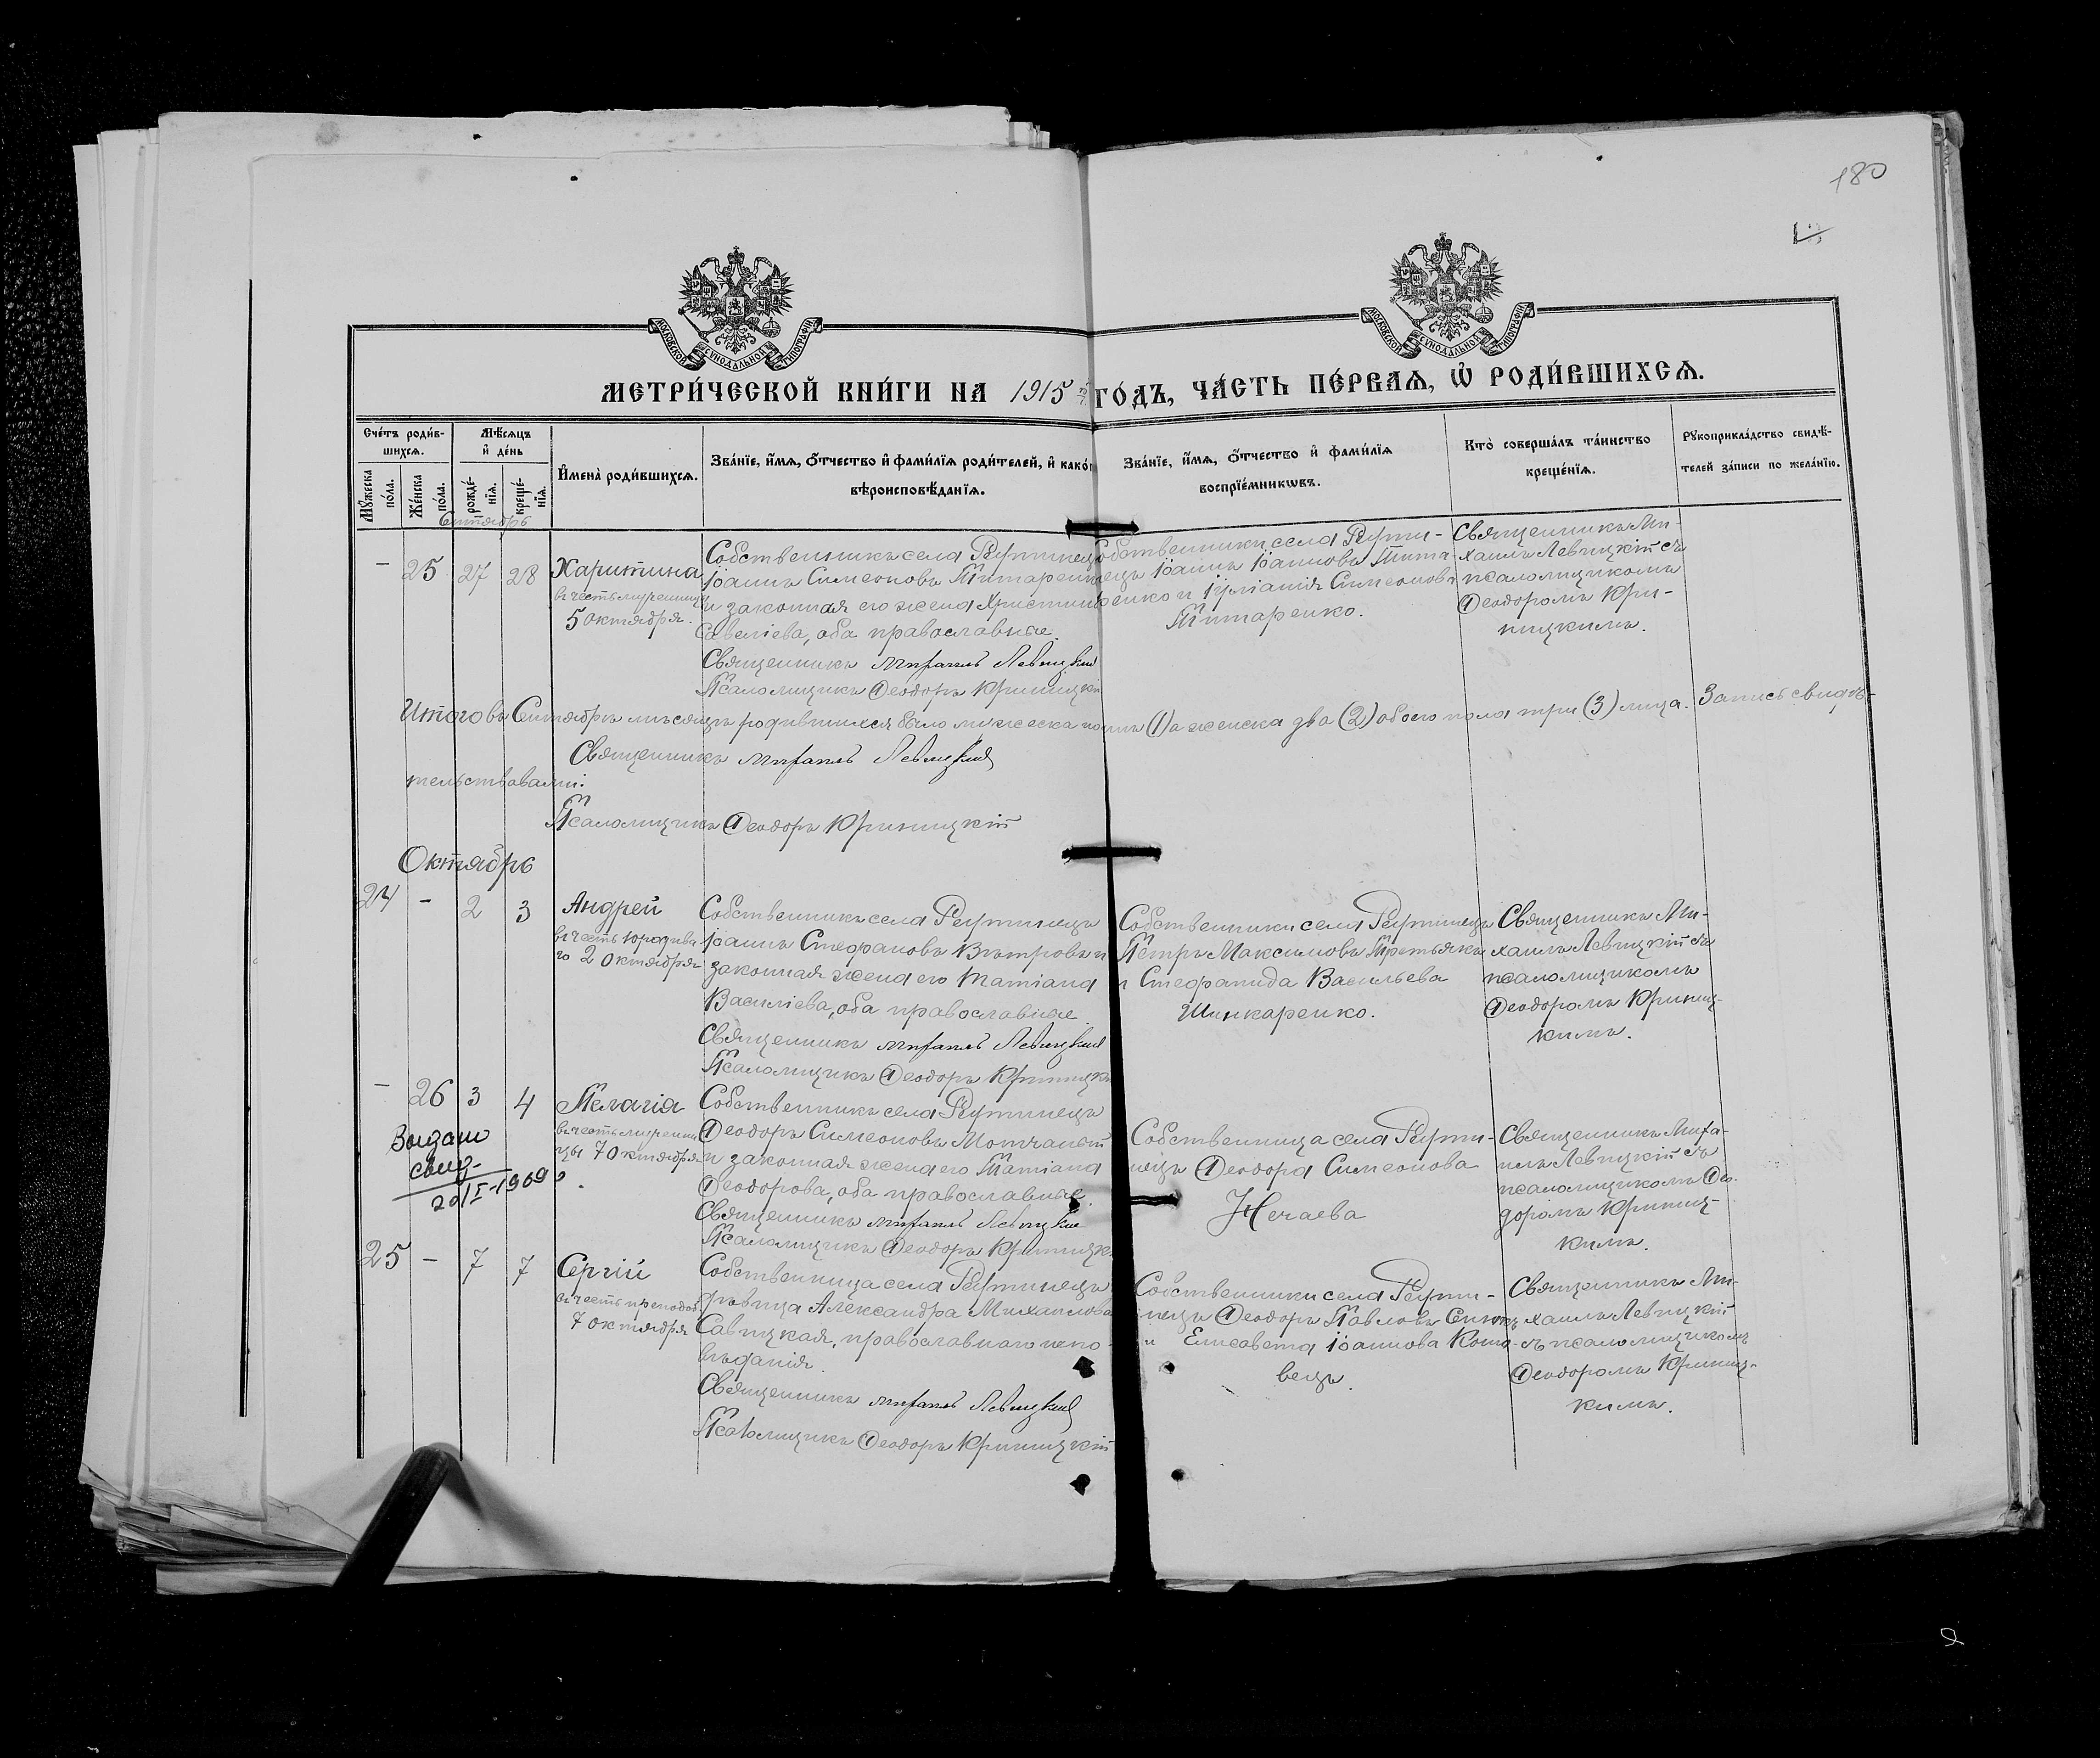 180
МОСКОВСКОЙ СѴНОДАЛЬНОЙ ТИПОГРАФІИ
МОСКОВСКОЙ СѴНОДАЛЬНОЙ ТИПОГРАФІИ
МЕТРИ́ЧЕСКОЙ КНИ́ГИ НА 1915 ГО́ДЪ, ЧА́СТЬ ПЕ́РВАѦ, Ѽ РОДИ́ВШИХСѦ.
Сче́тъ роди́вшихсѧ.
Мꙋ́жеска по́ла.
Же́нска по́ла.
Мѣ́сѧцъ и҆ де́нь
рожде́нїѧ.
креще́нїѧ.
И҆мена̀ роди́вшихсѧ.
Зва́нїе, и҆́мѧ, ѻ҆́тчество и҆ фами́лїѧ роди́телей, и҆ како́гѡ
вѣроисповѣ́данїѧ.
Зва́нїе, и҆́мѧ, ѻ҆́тчество и҆ фами́лїѧ
воспрїе́мникѡвъ.
Кто̀ соверша́лъ та́инство
креще́нїѧ.
Рꙋкоприкла́дство свидѣ́телей за́писи по жела́нїю.
Сентябрь
- 25 27 28
Харитина
въ честь мученицы
5 октября.
Собственникъ села Реутинецъ
Іоаннъ Симеоновъ Титаренко
и законная его жена Христина
Савеліева, оба православные.
Священникъ Михаилъ Левицкий
Псаломщикъ Ѳеодоръ Криницкій
Собственники села Реути-
нецъ Іоаннъ Іоанновъ Тита-
ренко и Іуліанія Симеонова
Титаренко.
Священникъ Ми-
хаилъ Левицкій съ
псаломщикомъ
Ѳеодоромъ Кри-
ницкимъ.
Итого въ Сентябрѣ мѣсяцѣ родившихся было мужеска одинъ (1) а женска два (2) обоего пола три (3) лица. Запись свидѣ-
тельствовали:
Священникъ Михаилъ Левицкий
Псаломщикъ Ѳеодоръ Криницкій
Октябрь
24 - 2 3
Андрей
въ честь юродива
го 2 октября
Собственникъ села Реутинецъ
Іоаннъ Стефановъ Вѣтровъ и
законная жена его Татіана
Василіева, оба православные
Священникъ Михаилъ Левицкий
Псаломщикъ Ѳеодоръ Криницкі
Собственники села Реутинецъ
Петръ Максимовъ Третьякъ
и Стефанида Васильева
Шинкаренко.
Священникъ Ми-
хаилъ Левицкій съ
псаломщикомъ
Ѳеодоромъ Криниц-
кимъ.
- 26 3 4
Выдано
свид.
20/I-1969
Пелагія
въ честь мучени
цы 7 октября
Собственникъ села Реутинецъ
Ѳеодоръ Симеоновъ Молчанъ
и законная жена его Татіана
Ѳеодорова, оба православные.
Священникъ Михаилъ Левицкий
Псаломщикъ Ѳеодоръ Криницк
Собственница села Реути-
нецъ Ѳеодора Симеонова
Нечаева
Священникъ Миха-
илъ Левицкій съ
псаломщикомъ Ѳео-
доромъ Криниц-
кимъ.
25 - 7 7
Сергій
въ честь преподоб.
7 октября
Собственница села Реутинецъ
дѣвица Александра Михаилова
Савицкая, православнаго испо-
вѣданія.
Священникъ Михаилъ Левицкий
Псаломщикъ Ѳеодоръ Криницкій
Собственники села Реути-
нецъ Ѳеодоръ Павловъ
и Елисавета Іоаннова
вецъ.
Священникъ Ми-
хаилъ Левицкій
съ псаломщикомъ
Ѳеодоромъ Криниц-
кимъ.